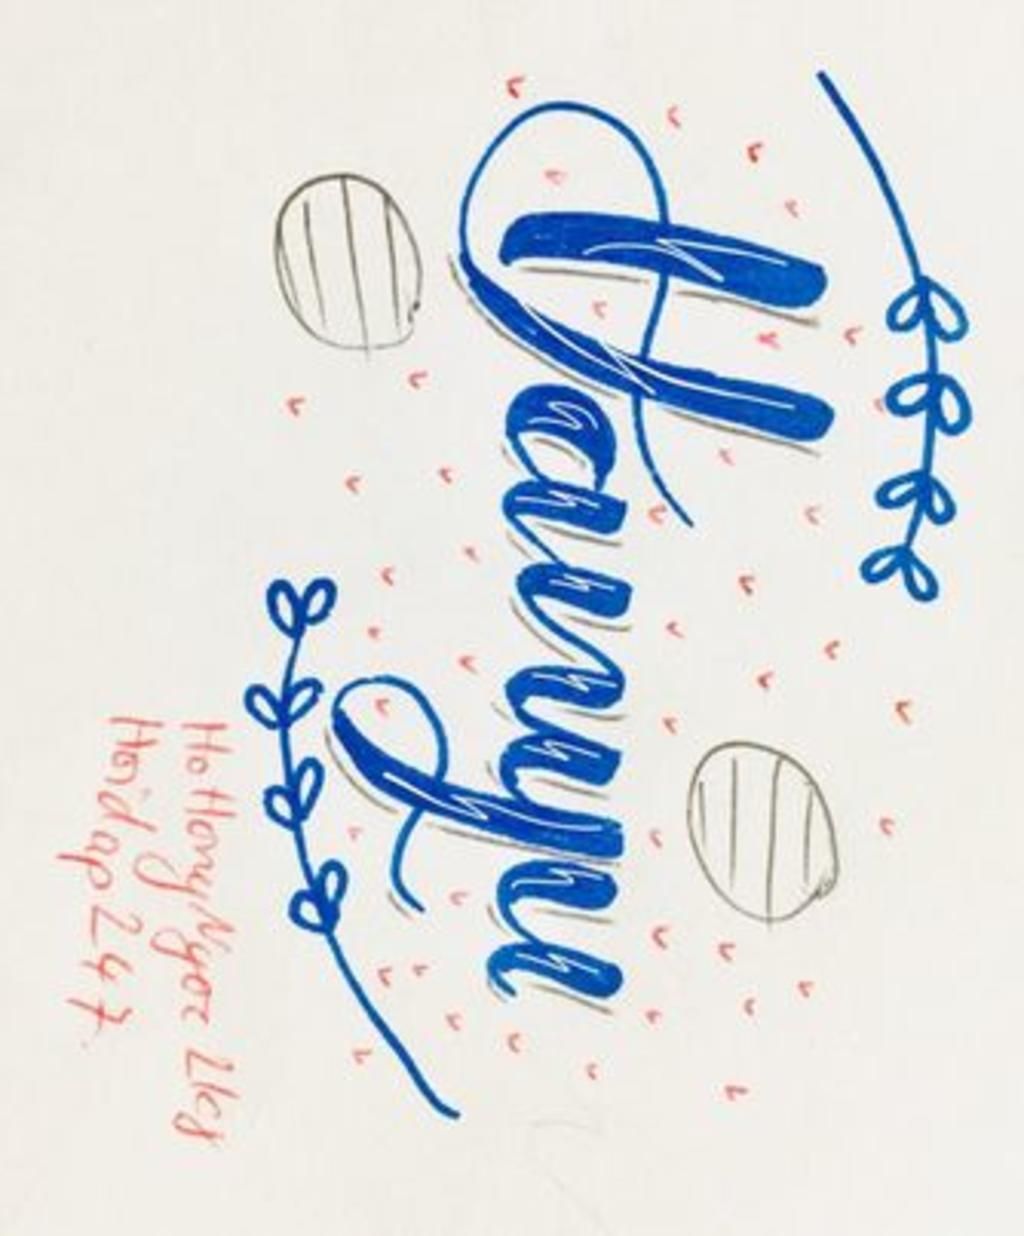 Hanyu
HoHongNgoc 2k8
Hoidap 247